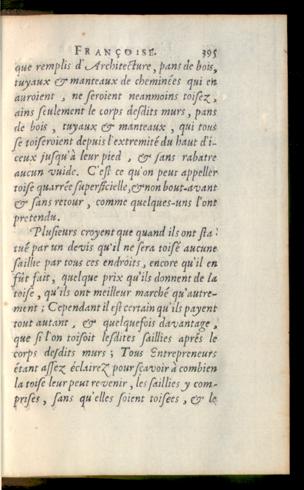 FRANÇOISE. 395
que remplis d'Architecture, pans de bois,
tuyaux & manteaux de cheminées qui en
auroient, ne seront neanmoins toisez,
ains seulement le corps desdits murs, pans
de bois, tuyaux & manteaux, qui tous
se toiseront depuis l'extremité du haut d'i-
ceux jusqu'à leur pied, & sans rabatre
aucun vuide. C'est ce qu'on peut appeller
toise quarrée superficielle, & non bout-avant
& sans retour, comme quelques-uns l'ont
pretendu.
Plusieurs croyent que quand ils ont sta-
tué par un devis qu'il ne sera toisé aucune
saillie par tous ces endroits, encore qu'il en
fût fait, quelque prix qu'ils donnent de la
toise, qu'ils ont meilleur marché qu'autre-
ment; Cependant il est certain qu'ils payent
tout autant, & quelquefois davantage,
que si l'on toisoit lesdites saillies aprés le
corps desdits murs; Tous Entrepreneurs
étant assez éclairez pour sçavoir à combien
la toise leur peut revenir, les saillies y com-
prises, sans qu'elles soient toisées, & le